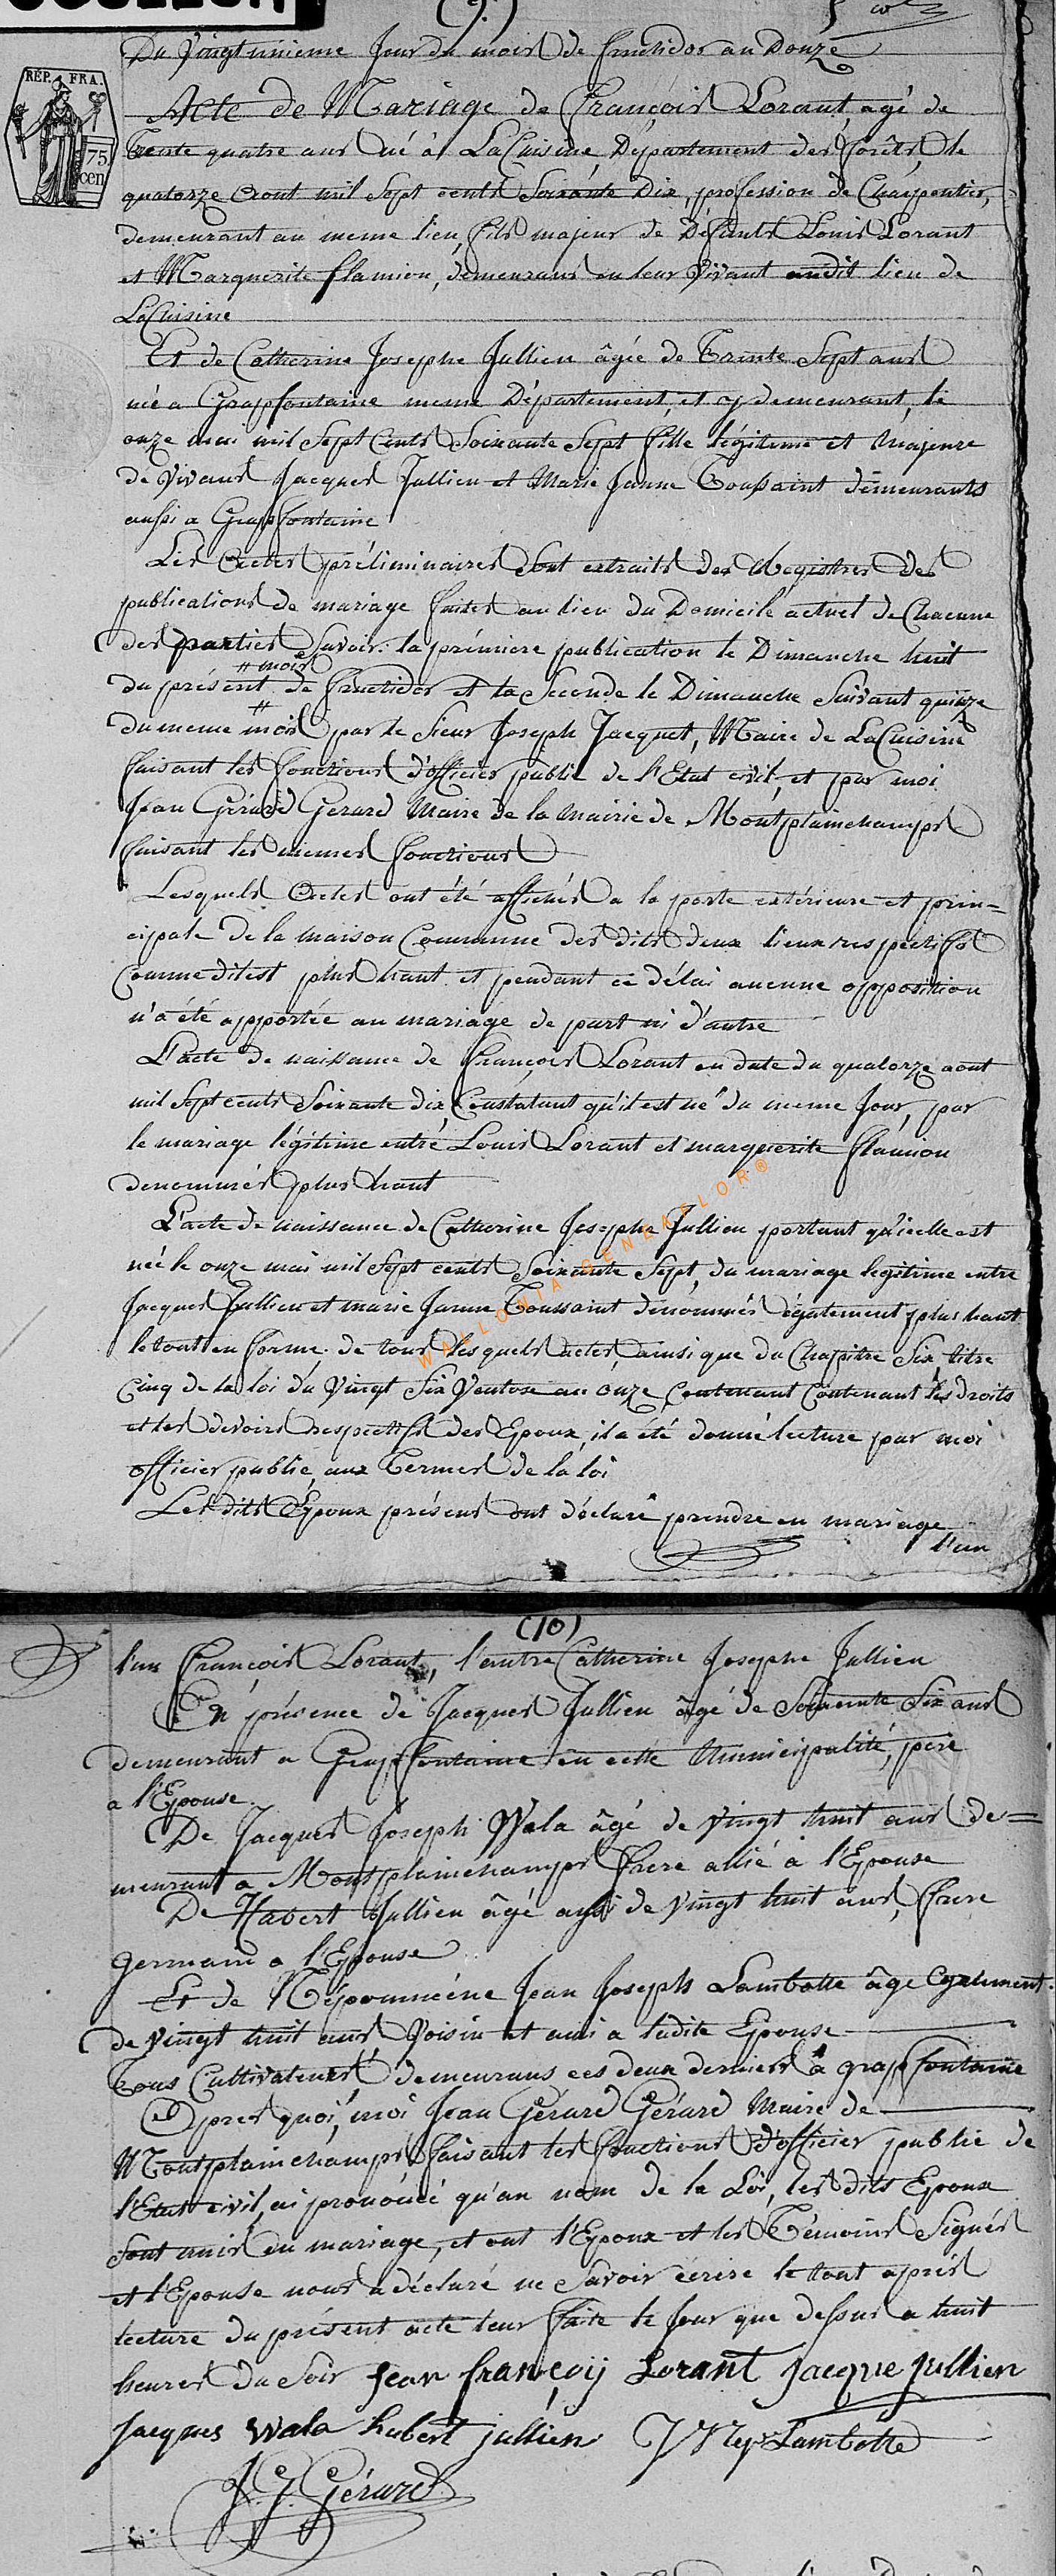 (9.)
Du Vingt unieme Jour du mois de fructidor an Douze
RÉP. FRA.
75
cen
Acte de Mariage de François Lorant, agé de
Trente quatre ans né à LaCuisine Département des forêts, le
quatorze aout mil Sept cents Soixante Dix, profession de Charpentier,
demeurant au meme lieu, fils majeur de Défunts Louis Lorant
et Marguerite flamion, demeurans en leur Vivant audit lieu de
LaCuisine
Et de Catherine Josephe Jullien âgée de Trente Sept ans
née a Grapfontaine meme Département, et y demeurant, le
onze mai mil Sept Cents Soixante Sept fille légitime et Majeure
de Vivans Jacques Jullien et Marie Janne Toussaint demeurants
aussi a Grapfontaine
Les Actes préliminaires Sont extraits des Registres des
publications de mariage faites au lieu du Domicile actuel de Chacune
des parties Savoir: la prémiere publication le Dimanche huit
# mois
du présent de fructidor et la Seconde le Dimanche Suivant quinze
#
du meme mois par le Sieur Joseph Jacquet, Maire de LaCuisine
faisant les fonctions d'officier public de l'Etat civil, et par moi
Jean Gérard Gerard Maire de la Mairie de Montplainchamps
faisant les memes fonctions
Lesquels Actes ont été affichés a la porte extérieure et prin=
cipale de la maison Commune des dits deux lieux respectifs
Comme dit est plus haut et pendant ce délai aucune opposition
n'a été apportée au mariage de part ni d'autre
L'acte de naissance de françois Lorant en date du quatorze aout
mil Sept cents Soixante dix Constatant qu'il est né du meme Jour, par
le mariage légitime entre Louis Lorant et marguerite flamion
denommés plus haut
L'acte de naissance de Catherine Josephe Jullien portant qu'icelle est
née le onze mai mil Sept cents Soixante Sept, du mariage legitime entre
Jacques Jullien et marie Janne Toussaint dénommés également plus haut
le tout en forme: de tous lesquels actes, ainsi que du Chapitre Six titre
Cinq de la loi du Vingt Six Ventose an onze, Contenant Contenant les droits
et les devoirs respectifs des Epoux, il a été donné lecture par moi
officier public, aux Termes de la loi
Les dits Epoux présens ont déclaré prendre en mariage
l'un
WALLONIA GENEAFLOR®
(10)
l'un François Lorant, l'autre Catherine Josephe Jullien
En présence de Jacques Jullien âgé de Soixante Six ans
demeurant a Grapfontaine en cette Municipalité, pere
a l'Epouse.
De Jacques Joseph Wala âgé de Vingt huit ans de=
meurant a Montplainchamps frere allié à l'Epouse
De Habert Jullien âgé aussi de Vingt huit ans, frere
germain a l'Epouse
Et de Népomucéne Jean Joseph Lambotte âge Egalement
de Vingt huit ans, Voisin et ami a ladite Epouse
tous Cultivateurs demeurans ces deux derniers à grapfontaine
Apres quoi, moi Jean Gérard Gérard Maire de
Montplainchamps faisant les fonctions d'officier public de
l'Etat civil, ai prononcé qu'au nom de la Loi, les dits Epoux
sont unis en mariage, et ont l'Epoux et les Témoins Signés
et l'Epouse nous a déclaré ne Savoir écrire le tout après
lecture du présent acte leur faite le Jour que dessus a huit
heures du Soir Jean françoÿ Lorant jacque jullien
Jacques Wala hubert jullien J Nep Lambotte
J. G. Gérard